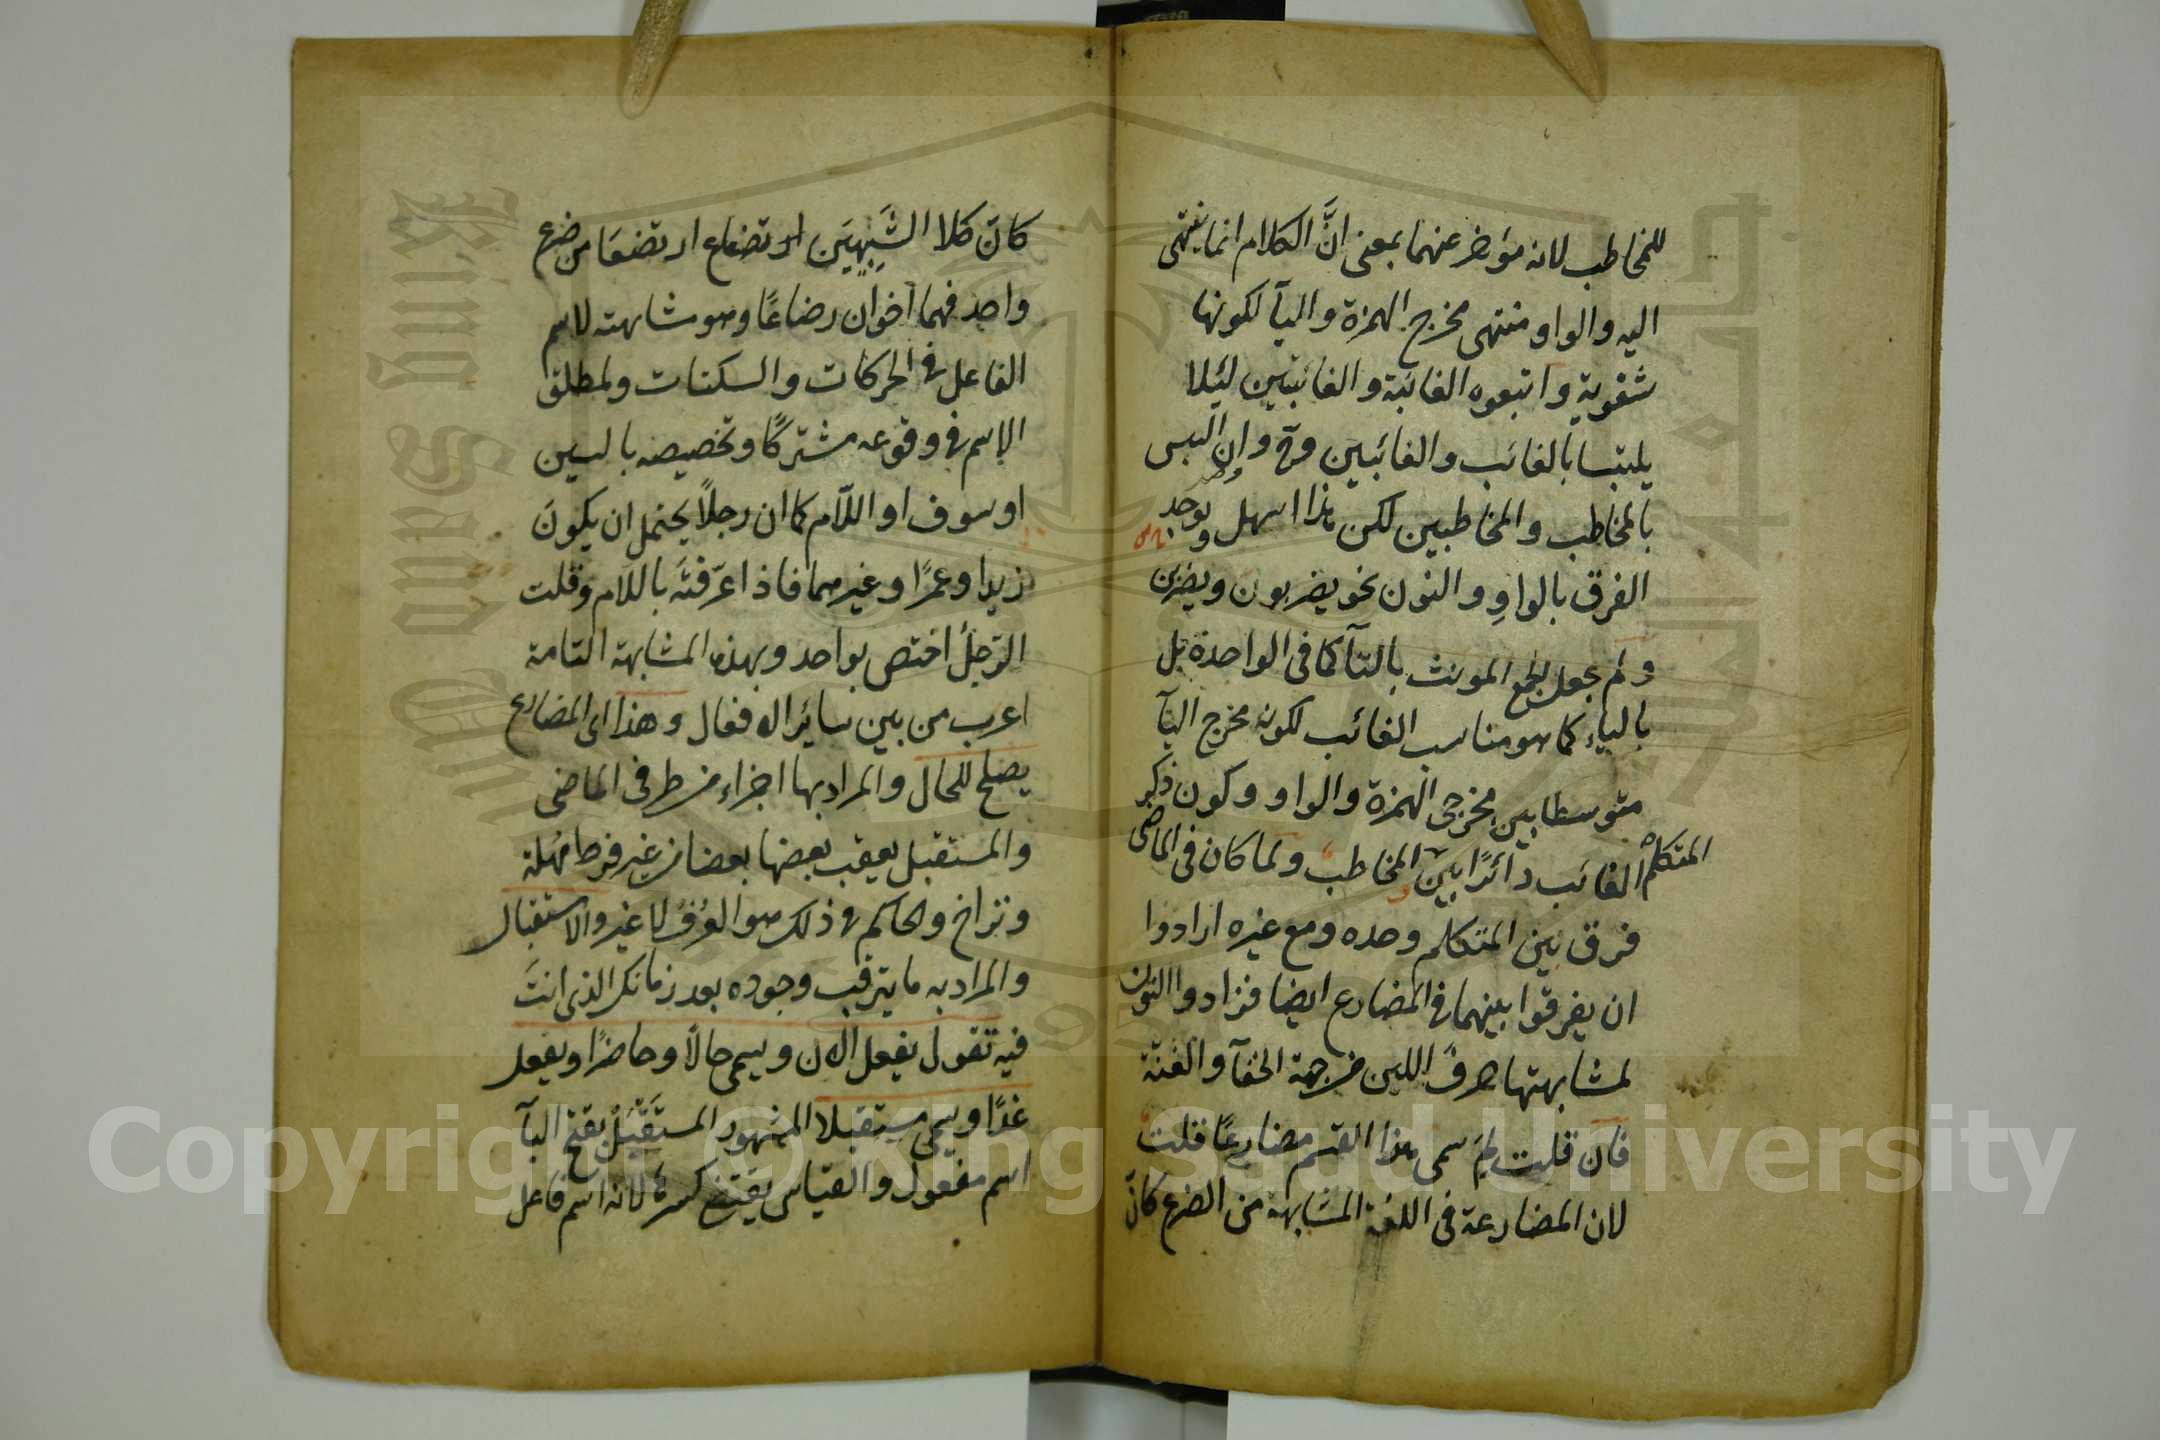 للمخاطب لانه مؤخر عنهما بمعنى انَّ الكلام انما ينتهى
اليه والواو منتهى مخرج الهمزة واليآ لكونها
شفوية واتبعوه الغائبة والغائبتين لئلا
يلتبسا بالغائب والغائبين وح وان التبس
بالمخاطب والمخاطبين لكن هذا اسهل ويوجد
الفرق بالواوِ والنون نحو يضربون ويضربن
ولم يجعل لجمع المونث بالتآ كما فى الواحدة بل
بالياء كما هو مناسب الغائب لكونه مخرج اليآ
متوسطا بين مخرجى الهمزة والواو وكون ذكر
الغائب دائرًا بين المخاطب ولما كان فى الماضى
المتكلم
فرق بين المتكلم وحده ومع غيره ارادوا
ان يفرقوا بينهما فى المضارع ايضا فزادوا النون
لمشابهتها حرفَ اللين من جهة الخفآ والغنّة
فان قلت لِمَ سمى هذا القسم مضارعًا قلت
لان المضارعة فى اللغة المشابهة من الضرع كانّ
كانّ كلا الشَّبِيهَين ارتضاع ارتضعَا من ضرع
واحد فهما اخوان رضاعًا وهو مشابهته لاسم
الفاعل فى الحركات والسكنات ولمطلق
الاسم فى وقوعه مشتركًا وتخصيصه بالسين
او سوف او اللّام كما ان رجلاً يحتمل ان يكونَ
زيدا وعمرًا وغيرهما فاذا عرّفتَه باللّام وقلت
الرّجلُ اختص بواحد وبهذه المشابهة التامة
اعرب من بين سائر الافعال وهذا اى المضارع
يصلح للحال والمراد بها اجزاء من طرفى الماضى
والمستقبل يعقب بعضها بعضا من غير فرط مهلة
وتراخ والحاكم فى ذلك هو العُرفُ لا غير والاستقبال
والمراد به ما يترقب وجوده بعد زمانك الذى انتَ
فيه تقول يفعل الآن ويسمى حالاً وحاضرًا ويفعل
غدًا ويسمى مستقبلا المشهور المستقبَل بفتح البآ
اسم مفعول والقياس يقتضى كسرها لانه اسم فاعل
Copyright © King Saud University